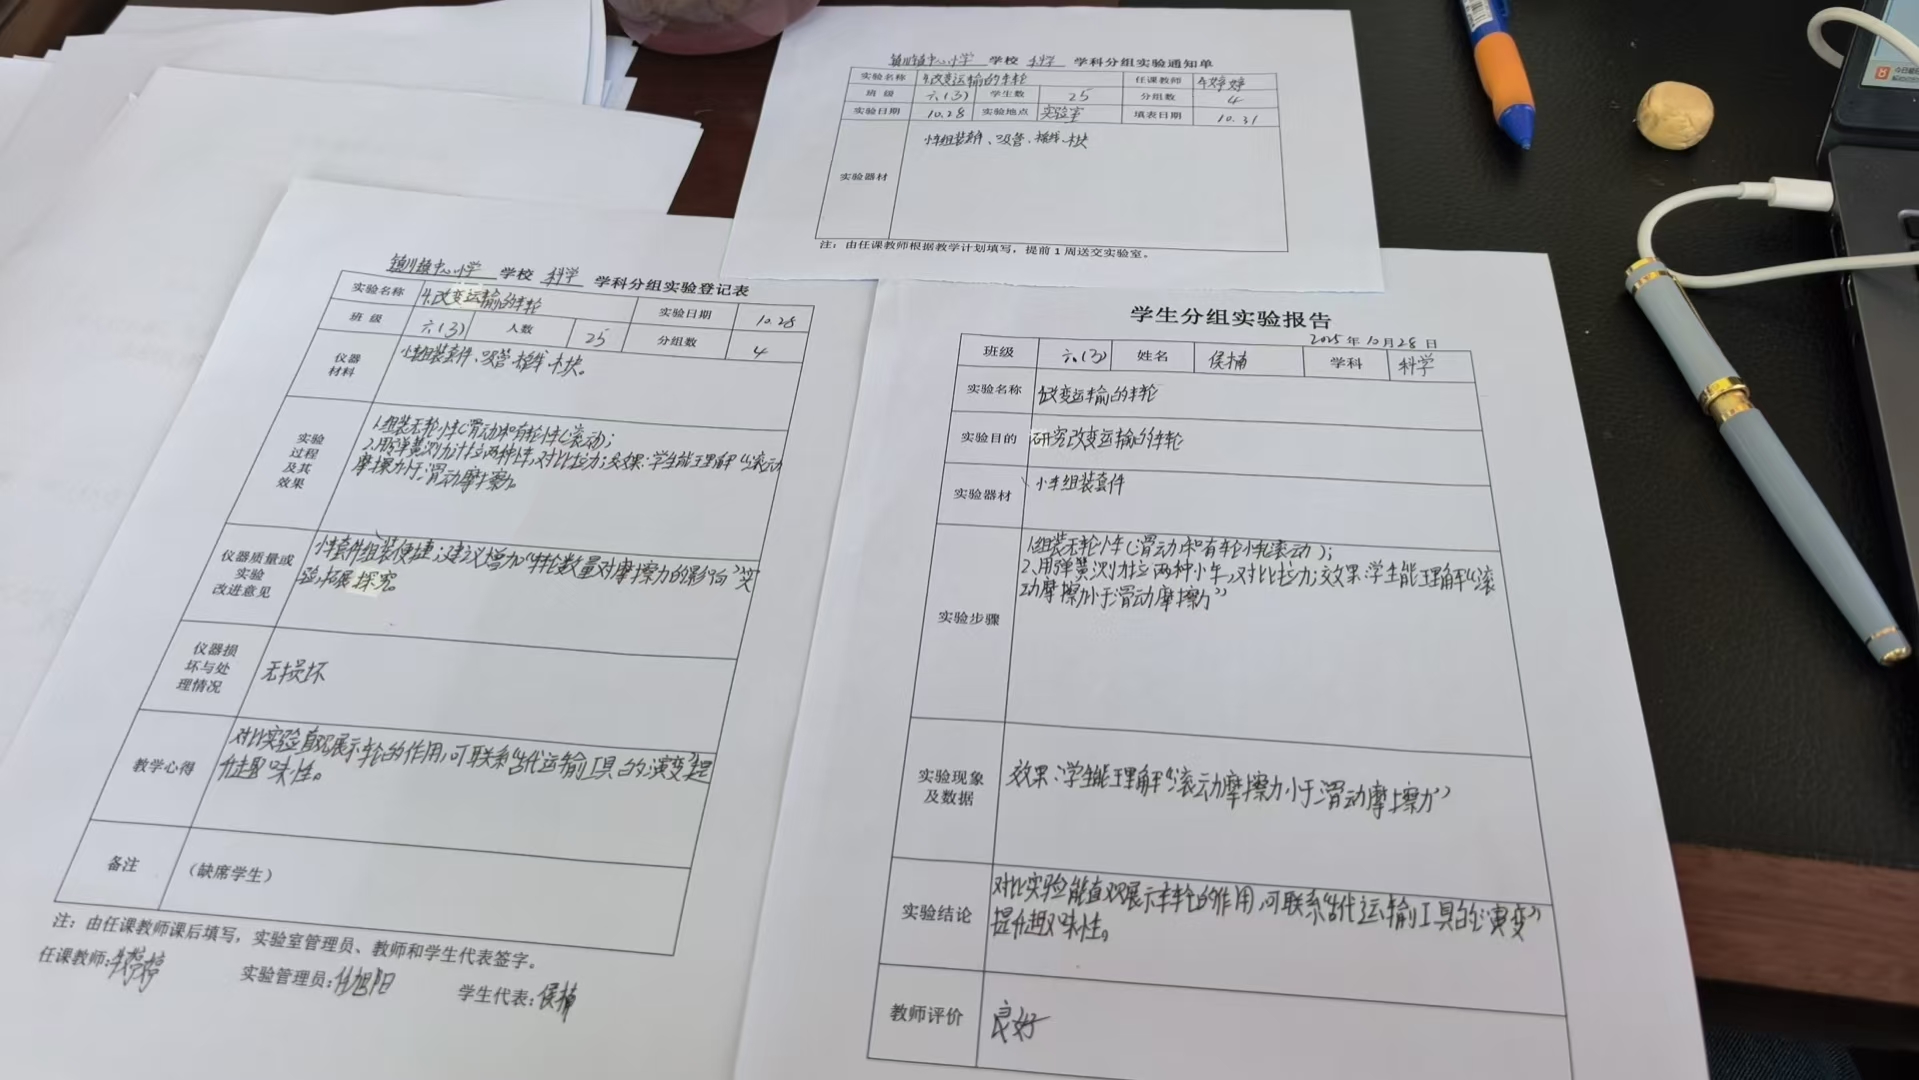 镇川镇中心小学 学校 科学 学科分组实验通知单
实验名称 4.改变运输的车轮 任课教师 牛婷婷
班 级 六(3) 学生数 25 分组数 4
实验日期 10.28 实验地点 实验室 填表日期 10.31
实验器材 小车组装套件、吸管、棉线、木块
注：由任课教师根据教学计划填写，提前1周送交实验室。
镇川镇中心小学 学校 科学 学科分组实验登记表
实验名称 4.改变运输的车轮 实验日期 10.28
班 级 六(3) 人数 25 分组数 4
仪器
材料
小车组装套件、吸管、棉线、木块。
实验
过程
及其
效果
1.组装无轮小车(滑动和有轮小车(滚动)；
2.用弹簧测力计拉两种小车,对比拉力;效果:学生能理解“滚动
摩擦力小于滑动摩擦力。
仪器质量或
实验
改进意见
小车套件组装便捷;建议增加“车轮数量对摩擦力的影响”实
验,拓展探究。
仪器损
坏与处
理情况
无损坏
教学心得
对比实验直观展示车轮的作用,可联系“古代运输工具的演变”提
升趣味性。
备注 （缺席学生）
注：由任课教师课后填写，实验室管理员、教师和学生代表签字。
任课教师:牛婷婷 实验管理员:旭阳 学生代表:侯楠
学生分组实验报告
2025年10月28日
班级 六(3) 姓名 侯楠 学科 科学
实验名称 改变运输的车轮
实验目的 研究改变运输的车轮
实验器材 小车组装套件
实验步骤
1.组装无轮小车(滑动和有轮小车(滚动)；
2、用弹簧测力拉两种小车,对比拉力;效果:学生能理解“滚
动摩擦力小于滑动摩擦力”
实验现象
及数据
效果:学生能理解“滚动摩擦力小于滑动摩擦力”
实验结论
对比实验能直观展示车轮的作用,可联系“古代运输工具的演变”
提升趣味性。
教师评价 良好